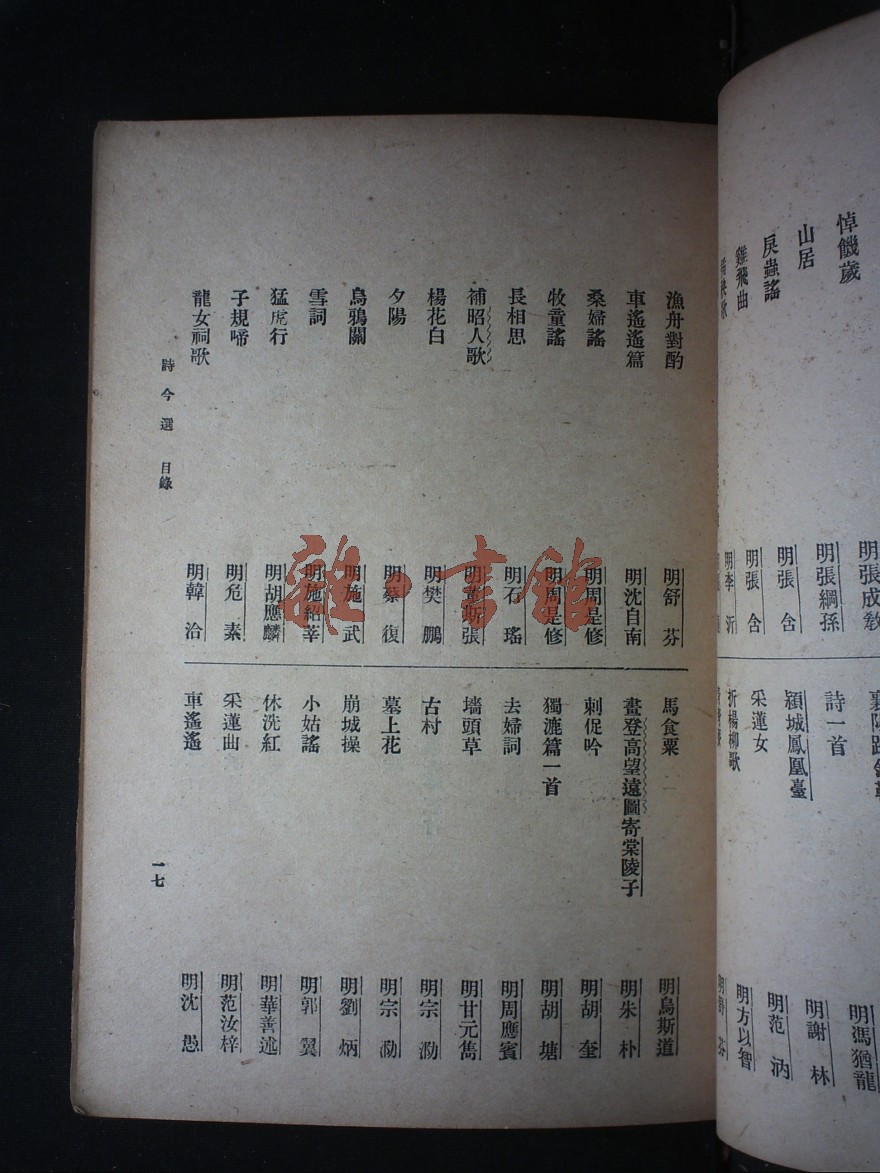 悼饑歲
明張成敎
山居
明張綱孫
戾蟲謠
明張含
雞飛曲
明張含
明李沂
明馮猶龍
詩一首
明謝林
潁城鳳凰臺
明范汭
采蓮女
明方以智
折楊柳歌
漁舟對酌
明舒芬
車遙遙篇
明沈自南
桑婦謠
明周是修
牧童謠
明周是修
長相思
明石瑤
補昭人歌
明董斯張
楊花白
明樊鵬
夕陽
明蔡復
烏鴉關
明施武
雪詞
明施紹莘
猛虎行
明胡應麟
子規啼
明危素
龍女祠歌
明韓洽
馬食粟
明烏斯道
畫登高望遠圖寄棠陵子
明朱朴
刺促吟
明胡奎
獨漉篇一首
明胡塘
去婦詞
明周應賓
墻頭草
明甘元雋
古村
明宗泐
墓上花
明宗泐
崩城操
明劉炳
小姑謠
明郭翼
休洗紅
明華善述
采蓮曲
明范汝梓
車遙遙
明沈愚
詩今選 目錄
一七
雜·書館